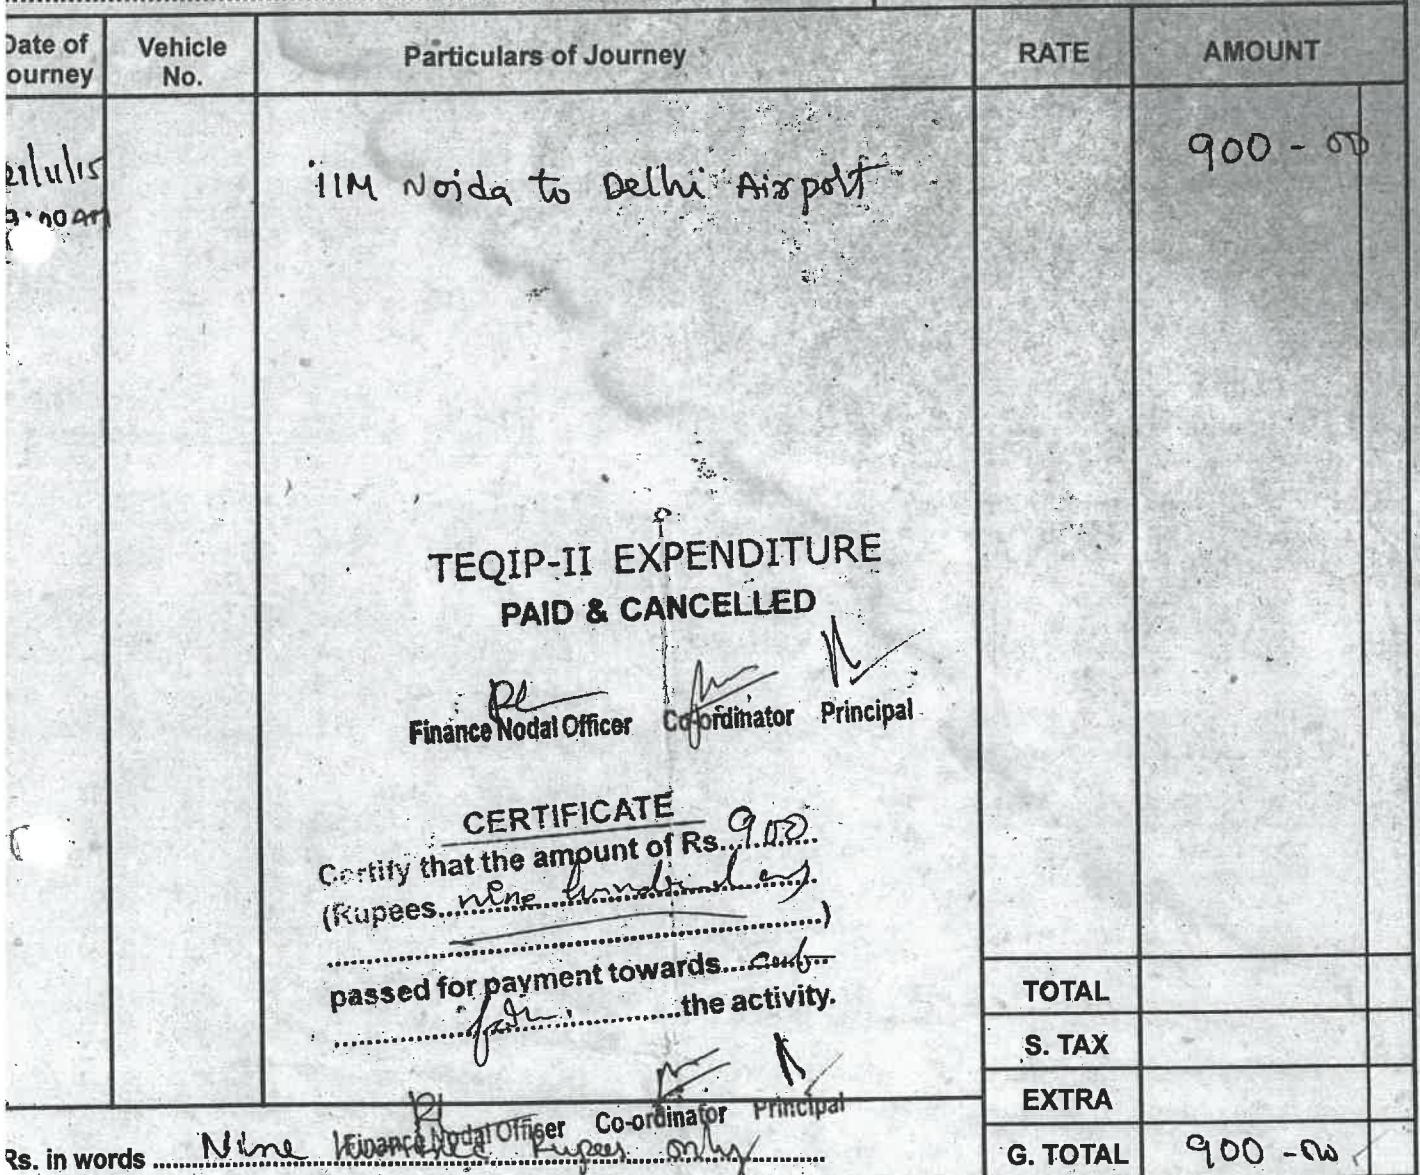 Date of Journey
Vehicle No.
Particulars of Journey
RATE
AMOUNT
21/11/15
IIM Noida to Delhi Airport
900 - 00
TEQIP-II EXPENDITURE
PAID & CANCELLED
Finance Nodal Officer Co-ordinator Principal
CERTIFICATE
Certify that the amount of Rs. 900
(Rupees nine hundred only
)
passed for payment towards
the activity.
Finance Nodal Officer Co-ordinator Principal
TOTAL
S. TAX
EXTRA
Rs. in words Nine Hundred Rupees only
G. TOTAL 900 - 00